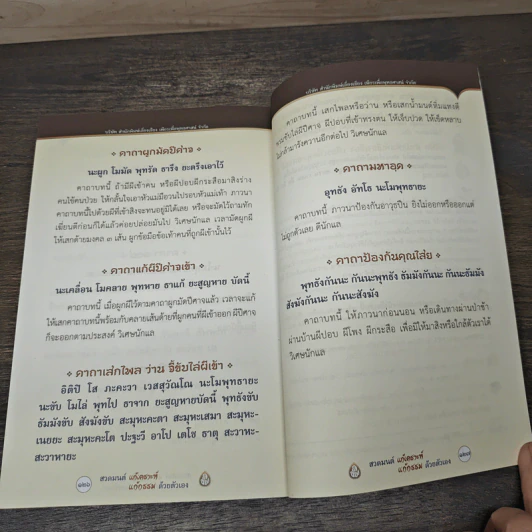 คาถาผูกมัดปีศาจ
นะผูก โมมัด พุทรัด ธารึง ยะตรึงเอาไว้
คาถาบทนี้ ถ้ามีผีเข้าคน หรือผีปอบผีกระสือมาสิงร่าง
คนใช้คนป่วย ให้ตั้งใจเอาหัวแม่มือวนไปรอบหัวแม่เท้า ภาวนา
คาถาบทนี้ไปด้วยผีที่เข้าสิงจะทนอยู่มิได้เลย หรือจะมัดไว้ถามทัก
เฆี่ยนตีก่อนก็ได้แล้วค่อยปล่อยมันไป วิเศษนักแล เวลามัดผูกผี
ให้เสกด้วยมงคล ๓ เส้น ผูกข้อมือข้อเท้าคนที่ถูกผีเข้านั้นไว้
คาถาแก้ผีปีศาจเข้า
นะเคลื่อน โมคลาย พุทหาย ธาแก้ ยะสูญหาย บัดนี้
คาถาบทนี้ เมื่อผูกผีไว้ตามคาถาผูกมัดปีศาจแล้ว เวลาจะแก้
ให้เสกคาถาบทนี้พร้อมกับคลายเส้นด้ายที่ผูกคนที่ผีเข้าออก ผีปีศาจ
ก็จะออกตามประสงค์ วิเศษนักแล
คาถาเสกไพล ว่าน จี้ขับไล่ผีเข้า
อิติปิ โส ภะคะวา เวสสุวัณโณ นะโมพุทธายะ
นะขับ โมไล่ พุทไป ธาจาก ยะสูญหายบัดนี้ พุทธังขับ
ธัมมังขับ สังฆังขับ สะมุหะคะตา สะมุหะเสมา สะมุหะ-
เนยยะ สะมุหะคะโต ปะฐะวี อาโป เตโช ธาตุ สะวาหะ-
สะวาหายะ
สวดมนต์ แก้เคราะห์ แก้กรรม ด้วยตัวเอง
คาถาบทนี้ เสกไพลหรือว่าน หรือเสกน้ำมนต์ทิ่มแทงตี
ขับไล่ผีปีศาจ ผีปอบที่เข้าทรงคน ให้เจ็บปวด ให้เข็ดหลาบ
ไม่กล้ามารังควานอีกต่อไป วิเศษนักแล
คาถามหาอุด
อุทธัง อัทโธ นะโมพุทธายะ
คาถาบทนี้ ภาวนาป้องกันอาวุธปืน ยิงไม่ออกหรือออกแต่
ไม่ถูกตัวเลย ดีนักแล
คาถาป้องกันคุณไสย
พุทธังกันนะ กันนะพุทธัง ธัมมังกันนะ กันนะธัมมัง
สังฆังกันนะ กันนะสังฆัง
คาถาบทนี้ ให้ภาวนาก่อนนอน หรือเดินทางผ่านป่าช้า
ผ่านบ้านผีปอบ ผีโพง ผีกระสือ เพื่อมิให้มาสิงหรือใกล้ตัวเราได้
วิเศษนักแล
สวดมนต์ แก้เคราะห์ แก้กรรม ด้วยตัวเอง